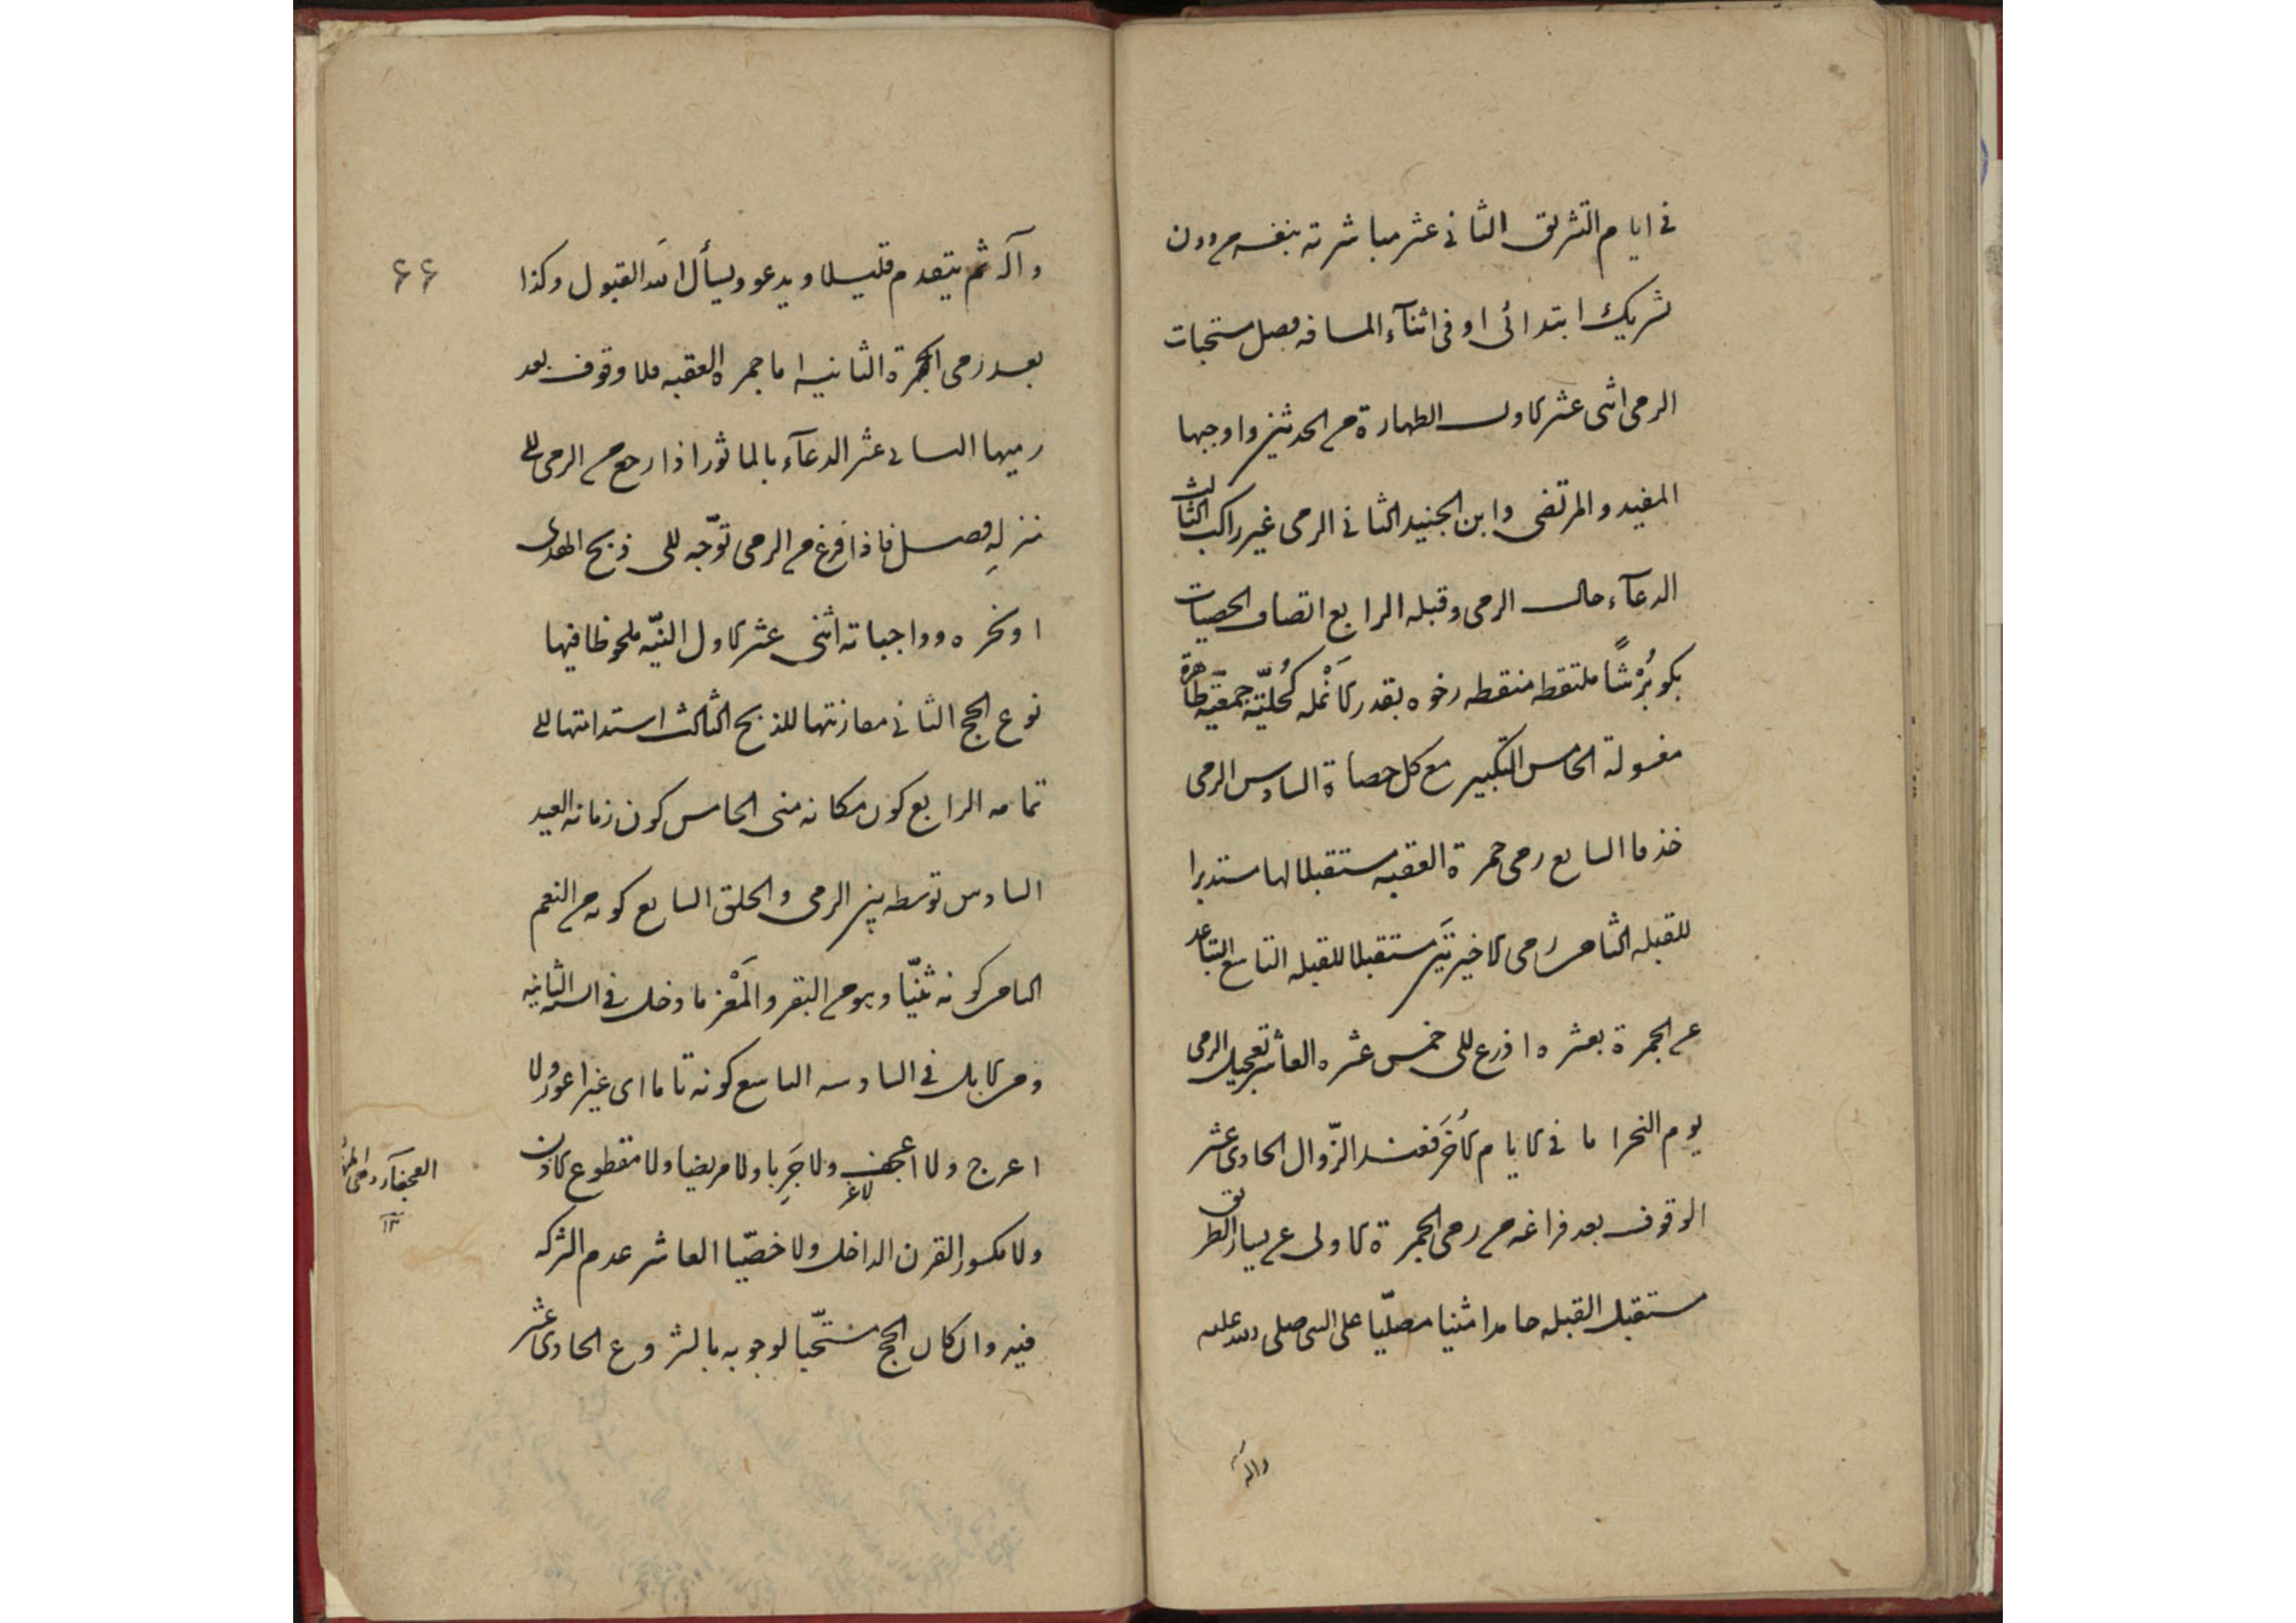 في ايام التشريق الثاني عشر مباشرته بنفسه من دون
تشريك ابتدائى او فى اثنآء المسافه فصل مستحبات
الرمى اثنى عشر الاول الطهارة من الحدثين واوجبها
المفيد والمرتضى وابن الجنيد الثانى الرمى غير راكب الثالث
الدعآء حال الرمى وقبله الرابع اتصاف الحصيات
بكونها بُرْشًا ملتقطه منقطه رخوه بقدر الأَنْمله كُحليّة جمعيّة طاهرة
مغسولة الخامس التكبير مع كل حصاة السادس الرمى
خذفا السابع رمى جمرة العقبه مستقبلا لها مستدبرا
للقبله الثامن رمى الاخيرتَين مستقبلا للقبله التاسع التباعد
عن الجمرة بعشره اذرع الى خمس عشره العاشر تعجيل الرمى
يوم النحر اما فى الايام الأُخَر فعند الزّوال الحادى عشر
الوقوف بعد فراغه من رمى الجمرة الاولى عن يسار الطريق
مستقبل القبله حامدا مثنيا مصلّيا على النبى صلى الله عليه
وآله
وآله ثم يتقدم قليلا ويدعو ويسأل الله القبول وكذا
٦٦
بعد رمى الجمرة الثانيه اما جمرة العقبه فلا وقوف بعد
رميها الثانى عشر الدعآء بالماثور اذا رجع من الرمى الى
منزلِهِ فصل فاذا فرغ من الرمى توّجه الى ذبح الهدى
او نحره وواجباته اثنى عشر الاول النيّه ملحوظا فيها
نوع الحج الثانى مقارنتها للذبح الثالث استدامتها الى
تمامه الرابع كون مكانه منى الخامس كون زمانه العيد
السادس توسطه بين الرمى والحلق السابع كونه من النعم
الثامن كونه ثنيّا وهو من البقر والمَعْز ما دخل فى السنه الثانيه
ومن الابل فى السادسه التاسع كونه تاما اى غير اعور ولا
اعرج ولا اعجف ولا جَرِبا ولا مريضا ولا مقطوع الاذن
لاغر
العجفآء
١٢
ولا مكسور القرن الداخل ولا خصّيا العاشر عدم الشركه
فيه وان كان الحج مستحّبا لوجوبه بالشروع الحادى عشر